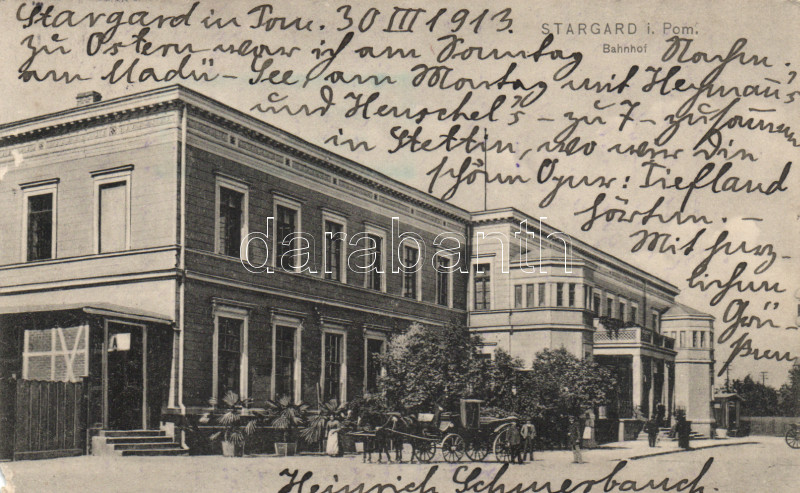 Stargard in Pom. 30 III 1913.
STARGARD i. Pom.
Bahnhof
zu Ostern war ich am Sonntag Nachm.
am Madü-See, am Montag mit Heymann's
und Henschel's - zu 7 - zusammen
in Stettin, wo wir die
schöne Oper: Tiefland
hörten. -
Mit herz-
lichen
Grü-
ßen
Heinrich Schmerbauch
darabanth.com